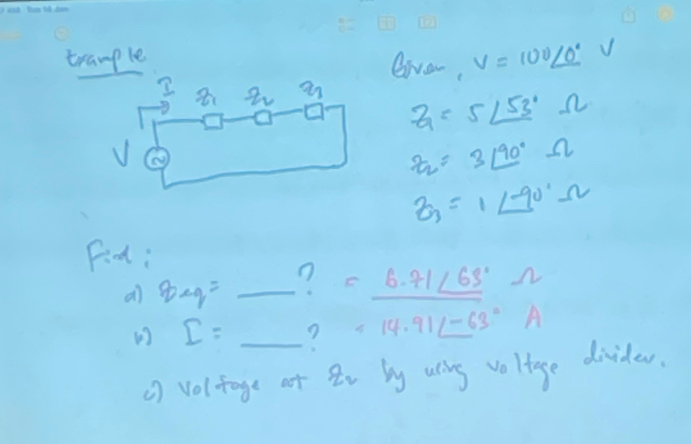 Example
Given, V = 100∠0° V
I Z1 Z2 Z3
Z1 = 5∠53° Ω
V
Z2 = 3∠90° Ω
Z3 = 1∠-90° Ω
Find:
a) Zeq = ____? = 6.71∠63° Ω
b) I = ____? = 14.91∠-63° A
c) Voltage at Z2 by using voltage divider.